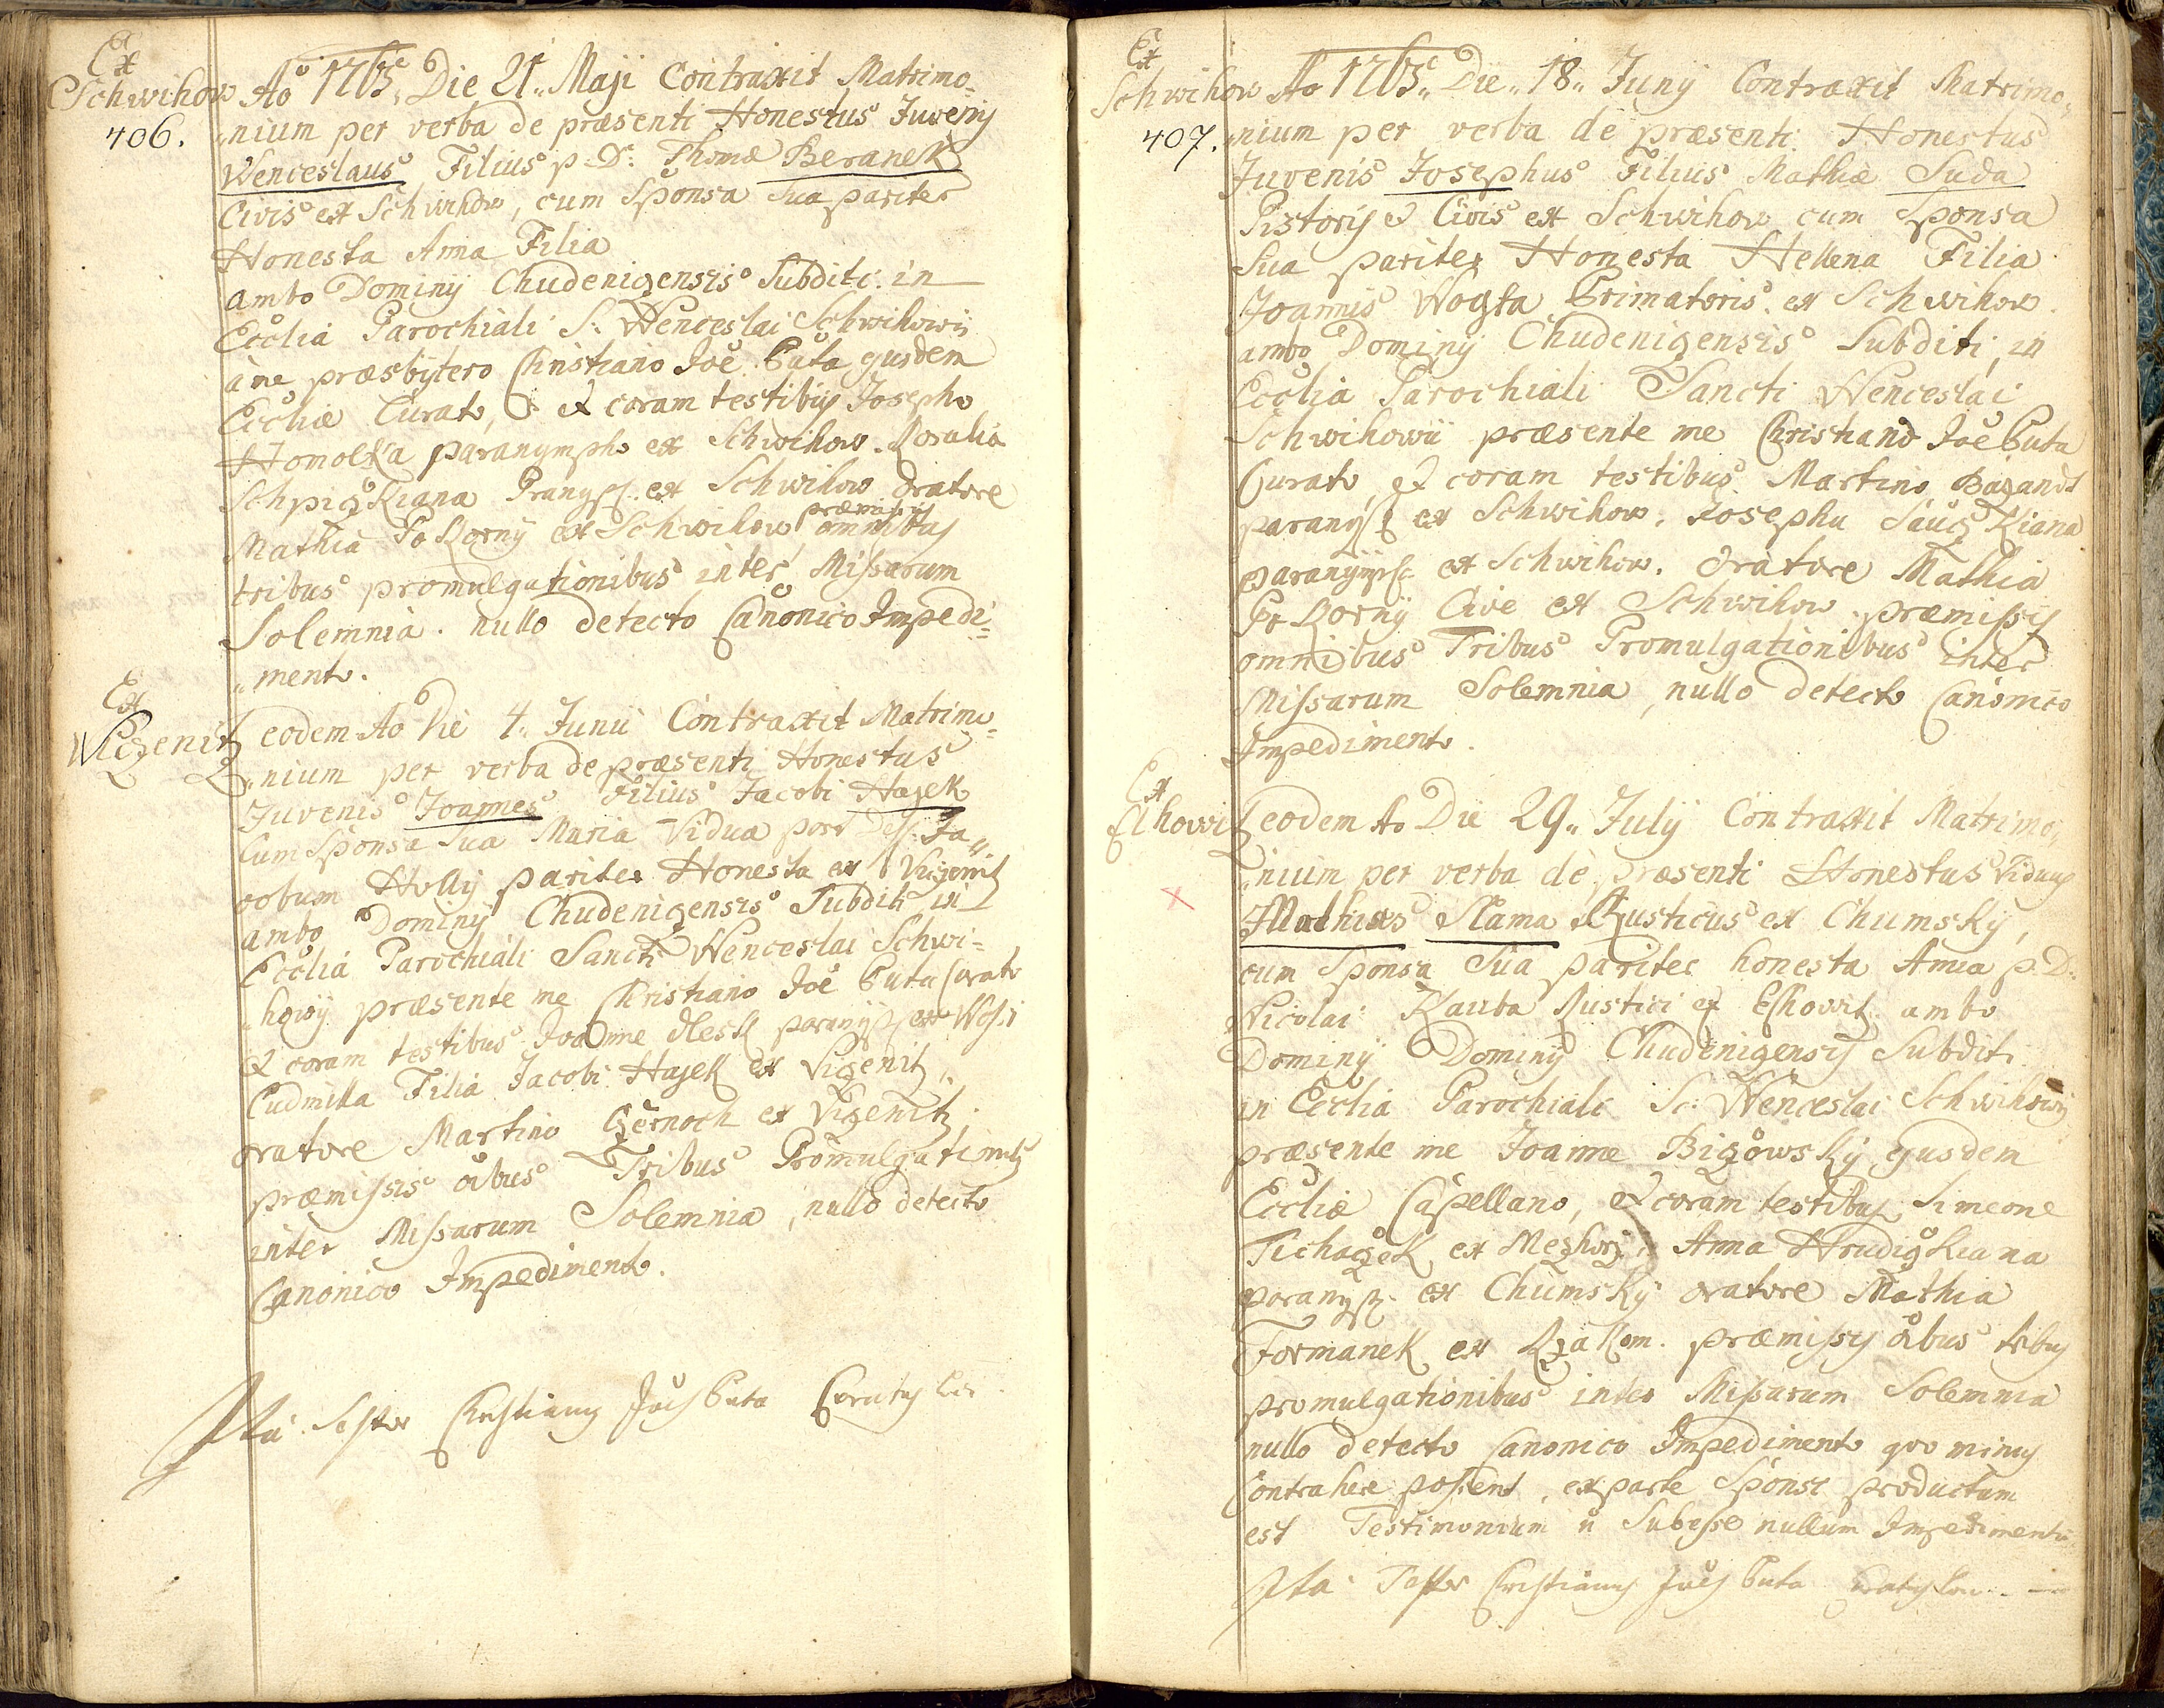 Ex
Schwihow
406.
Ao 1765. Die 21. Maji Contraxit Matrimo-
nium per verba de præsenti Honestus Juvenis
Wenceslaus Filius p: D: Thomæ Beranek
Civis ex Schwihow, cum Sponsa Sua pariter
Honesta Anna Filia
ambo Dominÿ Chudenizensis Subditi. in
Ecclia Parochiali S: Wenceslai Schwihowii
à me præsbÿtero Christiano Joē Puta ejusdem
Eccliæ Curato, et coram testibus Josepho
Homolka paranympho ex Schwihow. Rosalia
Schpizkiana Pranyss. ex Schwihow Oratore
Mathia Pokornÿ ex Schwihow præmissis omnibus
tribus promulgationibus inter Missarum
Solemnia. nullo detecto Canonico Impedi-
mento.
Ex
Wiczenitz
eodem Ao Die 4. Junii Contraxit Matrimo-
nium per verba de præsenti Honestus
Juvenis Joannes Filius Jacobi Hajek
Cum Sponsa Sua Maria Vidua post Def: Ja-
cobum Hollÿ pariter Honesta ex Viczenitz
ambo Dominÿ Chudenizensis Subditi in
Ecclia Parochiali Sancti Wenceslai Schwi-
howÿ præsente me Christiano Joē Puta Curato
et coram testibus Joanne
Ludmilla Filia Jacobi Hajek ex Vizenitz,
oratore Martino Czernoch ex Vizenitz,
præmissis oibus Tribus Promulgationibus
inter Missarum Solemnia, nullo detecto
Canonico Impedimento.
Ita Testor Christianus Joēs Puta Curatus
Ex
Schwihow
407.
Ao 1765. Die. 18. Junÿ Contraxit Matrimo-
nium per verba de præsenti Honestus
Juvenis Josephus Filius Mathiæ Suda
Pistoris et Civis ex Schwihow cum Sponsa
Sua pariter Honesta Hellena Filia
Joannis Wogta Primatoris ex Schwihow.
ambo Dominÿ Chudenizensis Subditi, in
Ecclia Parochiali Sancti Wenceslai
Schwihowii præsente me Christiano Joē Puta
Curato, et coram testibus Martino Bazandt
paranyss ex Schwihow. Josepha
paranymss ex Schwihow. Oratore Mathia
Pokornÿ Cive ex Schwihow. præmissis
omnibus Tribus Promulgationibus inter
Missarum Solemnia, nullo detecto Canonico
Impedimento.
Ex
Elhowitz
eodem Ao Die 29. Julÿ Contraxit Matrimo-
nium per verba de præsenti Honestus Viduus
Mathias Slama Rusticus ex Chumskÿ,
cum Sponsa Sua pariter honesta Anna p. D:
Nicolai Kauba Rustici ex Elhowitz. ambo
Dominÿ Dominÿ Chudenizensis Subditi
in Ecclia Parochiali Sc: Wenceslai Schwihowÿ
præsente me Joanne Bizowskÿ ejusdem
Eccliæ Capellano, et coram testibus Simeone
Tichaczek ex Mezhorz, Anna Hrudizkiana
paranyss. ex Chumskÿ oratore Mathia
Formanek ex Rzakom. præmissis oibus tribus
promulgationibus inter Missarum Solemnia
nullo detecto Canonico Impedimento quo minus
Contrahere possent, ex parte Sponsi productum
est Testimonium Subesse nullum Impedimentum.
Ita Testor Christianus Joēs Puta Curatus